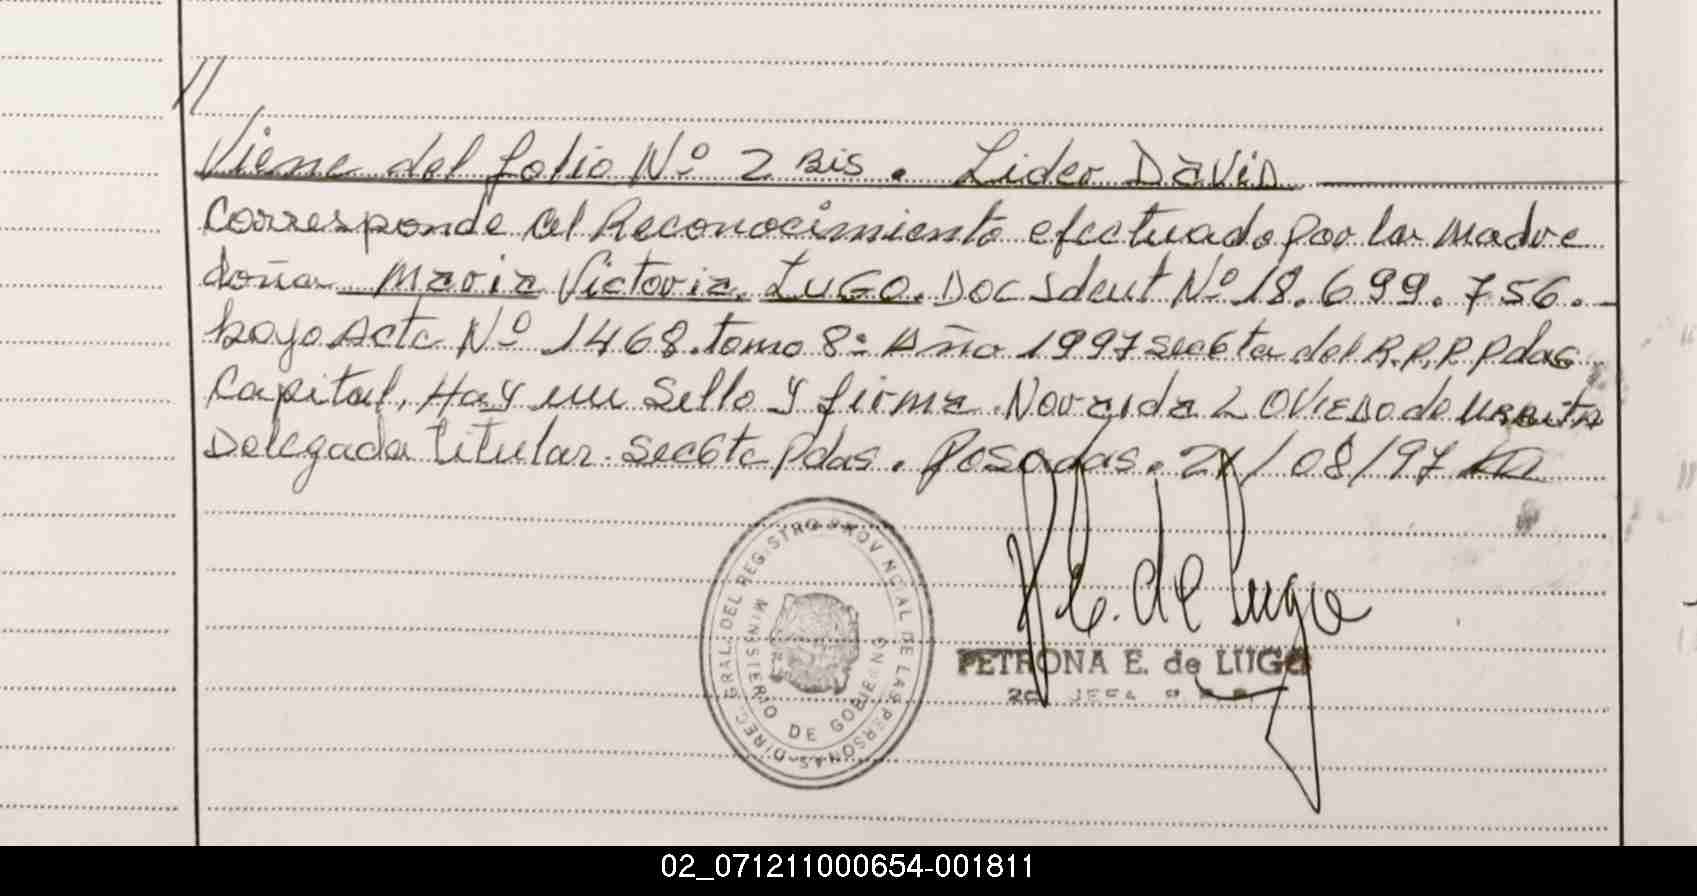 //
Viene del folio Nº 2 Bis. Lider David
Corresponde al Reconocimiento efectuado por la madre
doña Maria Victoria LUGO. Doc Ident Nº 18.699.756.-
bajo Acta Nº 1468. tomo 8: Año 1997 sec 6ta del R.P.P Pdas
Capital, Hay un Sello y firma. Noraida L OVIEDO de URRUTIA
Delegada titular. Sec 6ta Pdas. Posadas. 21/08/97
DIREC. GRAL. DEL REGISTRO PROVINCIAL DE LAS PERSONAS
MINISTERIO DE GOBIERNO
P.E. de Lugo
PETRONA E. de LUGO